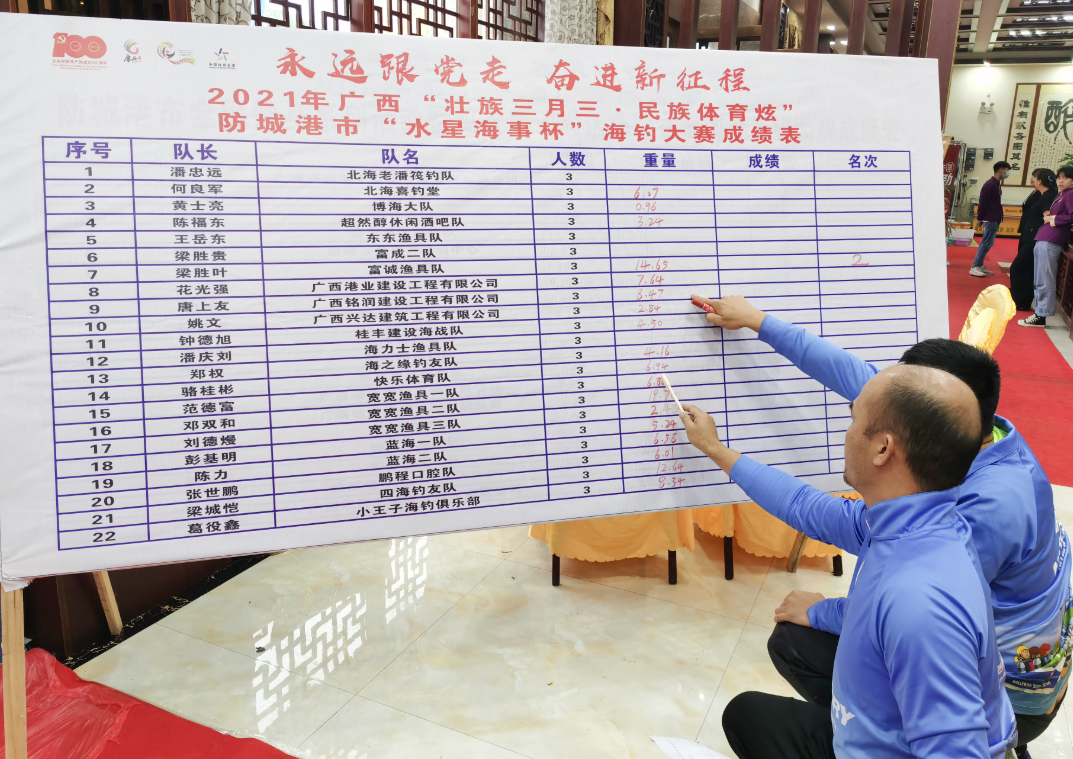 永远跟党走 奋进新征程
2021年广西“壮族三月三·民族体育炫”
防城港市“水星海事杯”海钓大赛成绩表
序号 队长 队名 人数 重量 成绩 名次
1 潘忠远 北海老潘筏钓队 3
2 何良军 北海喜钓堂 3 6.07
3 黄士亮 博海大队 3 0.96
4 陈福东 超然醇休闲酒吧队 3 3.24
5 王岳东 东东渔具队 3
6 梁胜贵 富成二队 3
7 梁胜叶 富诚渔具队 3 14.65 2
8 花光强 广西港业建设工程有限公司 3 7.64
9 唐上友 广西铭润建设工程有限公司 3 8.47
10 姚文 广西兴达建筑工程有限公司 3 2.84
11 钟德旭 桂丰建设海战队 3 4.30
12 潘庆刘 海力士渔具队 3
13 郑权 海之缘钓友队 3 4.16
14 骆桂彬 快乐体育队 3 6.94
15 范德富 宽宽渔具一队 3
16 邓双和 宽宽渔具二队 3
17 刘德熳 宽宽渔具三队 3
18 彭基明 蓝海一队 3 5.24
19 陈力 蓝海二队 3 6.56
20 张世鹏 鹏程口腔队 3 6.01
21 梁城恺 四海钓友队 3 12.64
22 葛役鑫 小王子海钓俱乐部 3 8.34